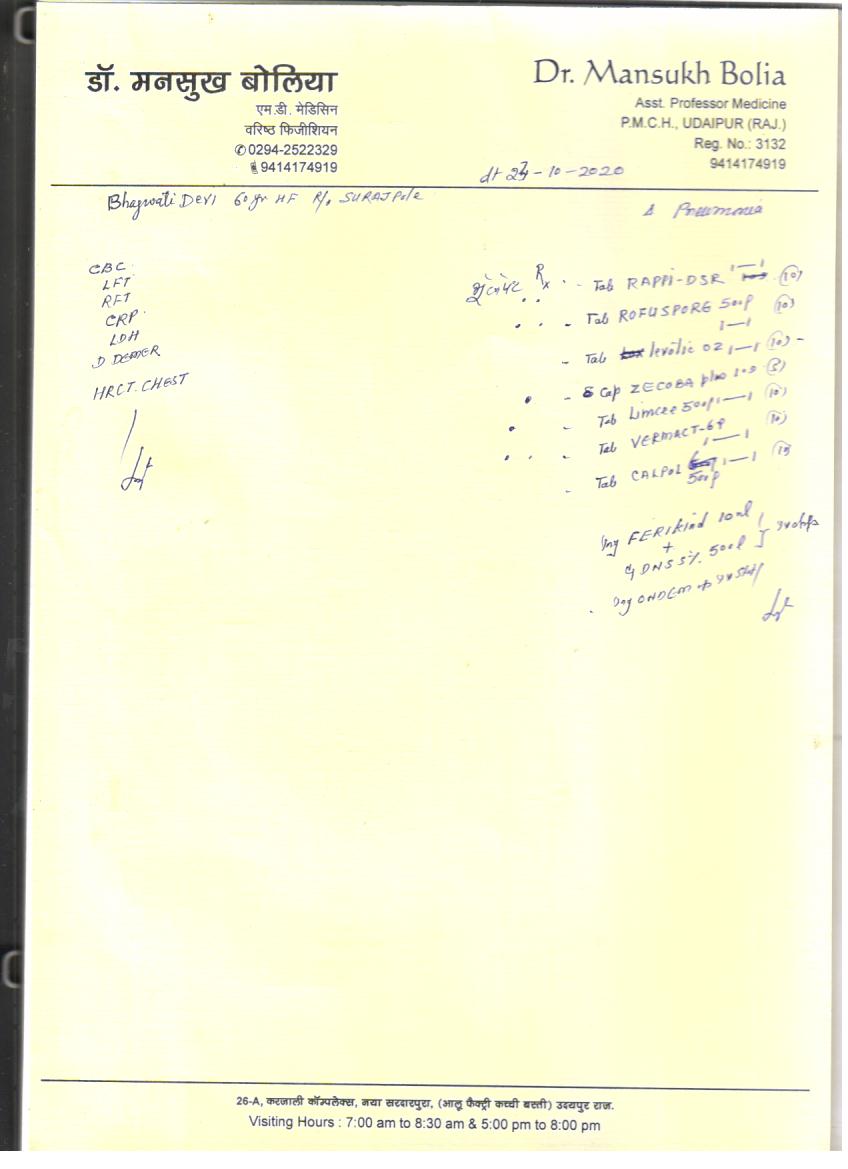 डॉ. मनसुख बोलिया
एम.डी. मेडिसिन
वरिष्ठ फिजीशियन
0294-2522329
9414174919
Dr. Mansukh Bolia
Asst. Professor Medicine
P.M.C.H., UDAIPUR (RAJ.)
Reg. No.: 3132
9414174919
dt 27-10-2020
Bhagwati Devi 60 yr HF R/o SURAJPole
Δ Pneumonia
CBC
LFT
RFT
CRP
LDH
D DEMER
HRCT. CHEST
Rx
Tab RAPPI-DSR 1—1 (10)
Tab ROFUSPORE 500 (10)
1—1
Tab levolic OZ 1—1 (10)
Cap ZECOBA plus (5)
Tab Limcee 500 1—1 (10)
Tab VERMACT-6 (10)
1—1
Tab CALPOL 1—1 (10)
500
Inj FERIkind 10ml
+
DNS 5%. 500
Inj ONDEM
26-A, करजाली कॉम्पलेक्स, नया सरदारपुरा, (आलू फैक्ट्री कच्ची बस्ती) उदयपुर राज.
Visiting Hours : 7:00 am to 8:30 am & 5:00 pm to 8:00 pm